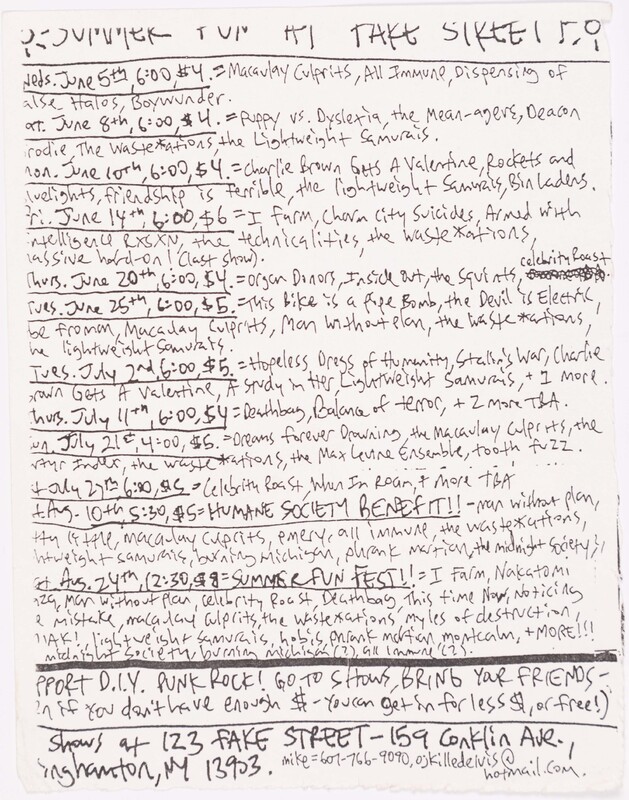 SUMMER FUN AT FAKE STREET!
Weds. June 5th, 6:00, $4. = Macaulay Culprits, All Immune, Dispensing of
alse Halos, Boywunder.
at. June 8th, 6:00, $4. = Puppy vs. Dyslexia, the Mean-agers, Deacon
rodie, The waste*ations, the Lightweight Samurais.
mon. June 10th, 6:00, $4. = Charlie Brown Gets A Valentine, Rockets and
luelights, friendship is terrible, the lightweight Samurais, Bin ladens.
Fri. June 14th, 6:00, $6 = I Farm, Charm City Suicides, Armed with
intelligence, RxSxN, the technicalities, the waste*ations,
massive hard-on! (last show).
Thurs. June 20th, 6:00, $4. = Organ Donors, Inside out, the squints, celebrity Roast
Tues. June 25th, 6:00, $5. = This Bike is a Pipe Bomb, the Devil is Electric,
be froman, Macaulay Culprits, Man Without Plan, the waste*ations,
he lightweight Samurais.
Tues. July 2nd, 6:00, $5. = Hopeless Dregs of Humanity, Stalin's War, Charlie
rown Gets A Valentine, A study in Her, Lightweight Samurais, + 1 more.
Thurs. July 11th, 6:00, $4 = Deathbag, Balance of terror, + 2 more TBA.
un. July 21st, 4:00, $5. = Dreams forever Drowning, the Macaulay Culprits, the
rtyr Index, the waste*ations, the Max Levine Ensemble, tooth fuzz.
t July 27th 6:00, $5 = Celebrity Roast, When In Roam, + more TBA
t Aug. 10th, 5:30, $5 = HUMANE SOCIETY BENEFIT!! - man without plan,
tty little, macaulay culprits, emery, all immune, the waste*ations,
htweight samurais, burning michigan, phrank martian, the midnight society,
at. Aug. 24th, 12:30, $8 = SUMMER FUN FEST!! = I Farm, Nakatomi
aza, Man without Plan, Celebrity Roast, Deathbag, This time Now, Noticing
e mistake, macaulay culprits, the waste*ations, myles of destruction,
AK!, lightweight samurais, hobis, phrank martian, montcalm, + MORE!!!
midnight society, burning michigan (?), all immune (?).
PPORT D.I.Y. PUNK ROCK! GO TO SHOWS, BRING YOUR FRIENDS-
n if you don't have enough $ - you can get in for less $, or free!)
shows at 123 FAKE STREET - 159 Conklin Ave.,
inghamton, NY 13903. mike = 607-766-9090, ojkilledelvis@
hotmail.com.